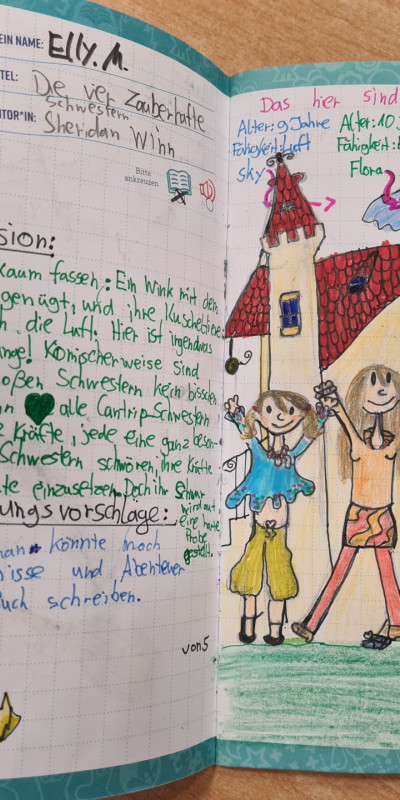 EIN NAME: Elly. M.
TEL: Die ver Zauberhafte
schwestern
UTOR*IN: Sheridan Winn
Bitte
ankreuzen
sion:
kaum fassen: Ein Wink mit dem
genügt, und ihre Kuscheltiere
die Luft. Hier ist irgendwas
Komischerweise sind
oßen Schwestern kein bisschen
alle Cantrip-Schwestern
e Kräfte, jede eine ganz beson-
Schwestern schwören, ihre Kräfte
te einzusetzen. Doch ihr Schwur
wird auf
eine harte
Probe
gestellt.
ungsvorschläge:
man könnte noch
nisse und Abenteuer
uch schreiben.
von 5
Das hier sind
Alter: 9 Jahre
Fähigkeit: Luft
Sky
Alter: 10 J
Fähigkeit: E
Flora